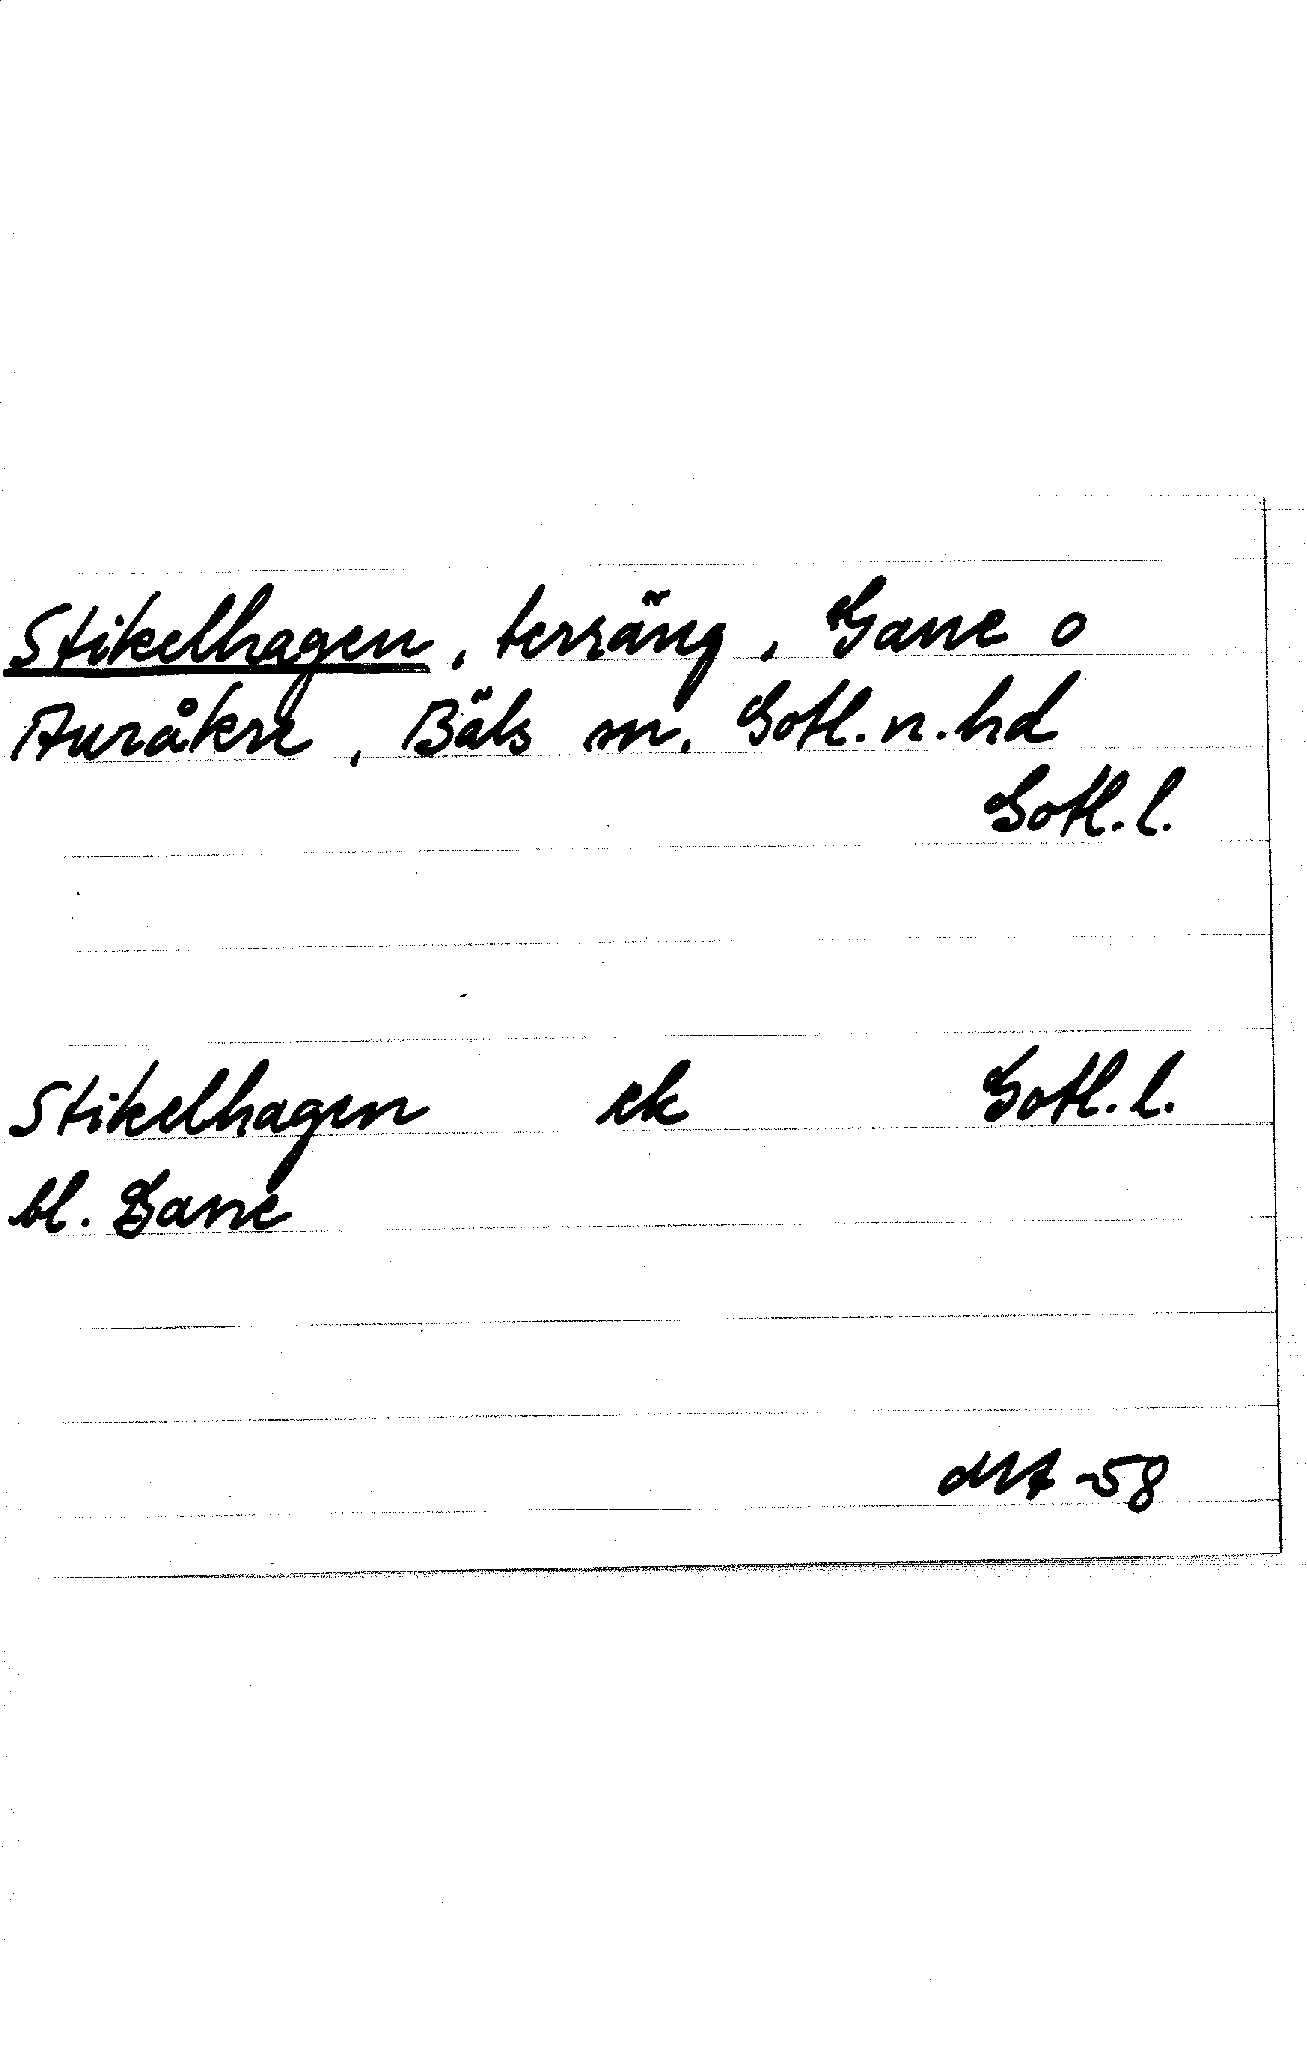 Stikelhagen, terräng, Gane o
Auråkre, Bäls sn. Gotl. n. hd
Gotl. l.
Stikelhagen ek Gotl. l.
bl. Gane
-58